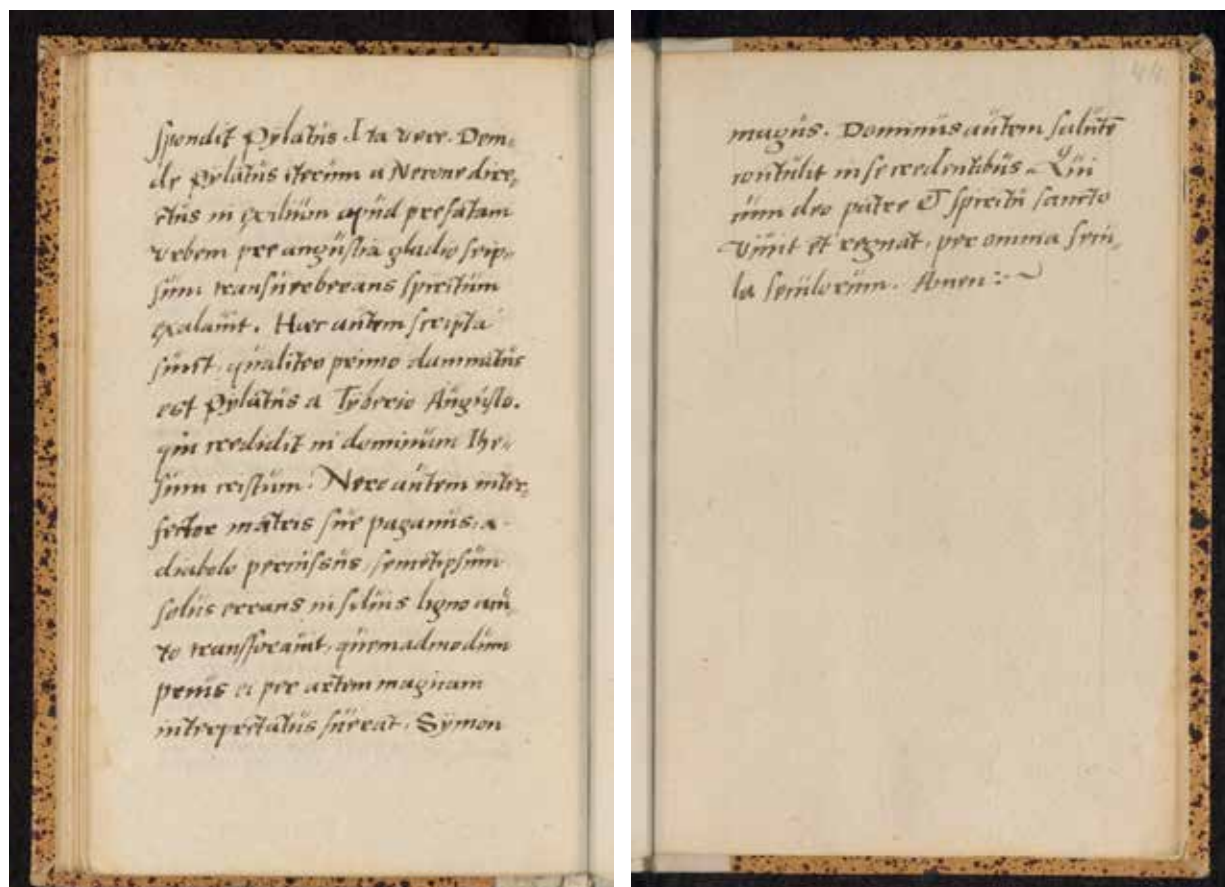 spondit Pylatus. Ita vere. Dein:
de Pylatus iterum a Nerone dire,
ctus in exilium apud prefatam
urbem pre angustia gladio seip:
sum transuerberans spiritum
exalauit. Haec autem scripta
sunt, qualiter primo damnatus
est Pylatus a Tyberio Augusto.
qui credidit in dominum Ihe:
sum cristum. Nero autem inter,
fector matris sue paganus, a
diabolo percussus, semetipsum
solus errans in siluis ligno acu,
to transforauit, quemadmodum
prius ei per artem magicam
interpretatus fuerat. Symon
44
magus. Dominus autem salutē
contulit in se credentibus. Qui
cum deo patre et spiritu sancto
viuit et regnat, per omnia secu,
la seculorum. Amen :~